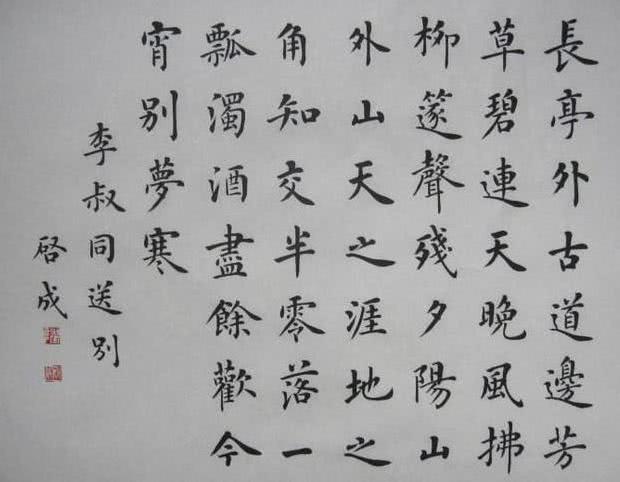 長亭外古道邊芳
草碧連天晚風拂
柳篴聲殘夕陽山
外山天之涯地之
角知交半零落一
瓢濁酒盡餘歡今
宵别夢寒
李叔同送别
啓成